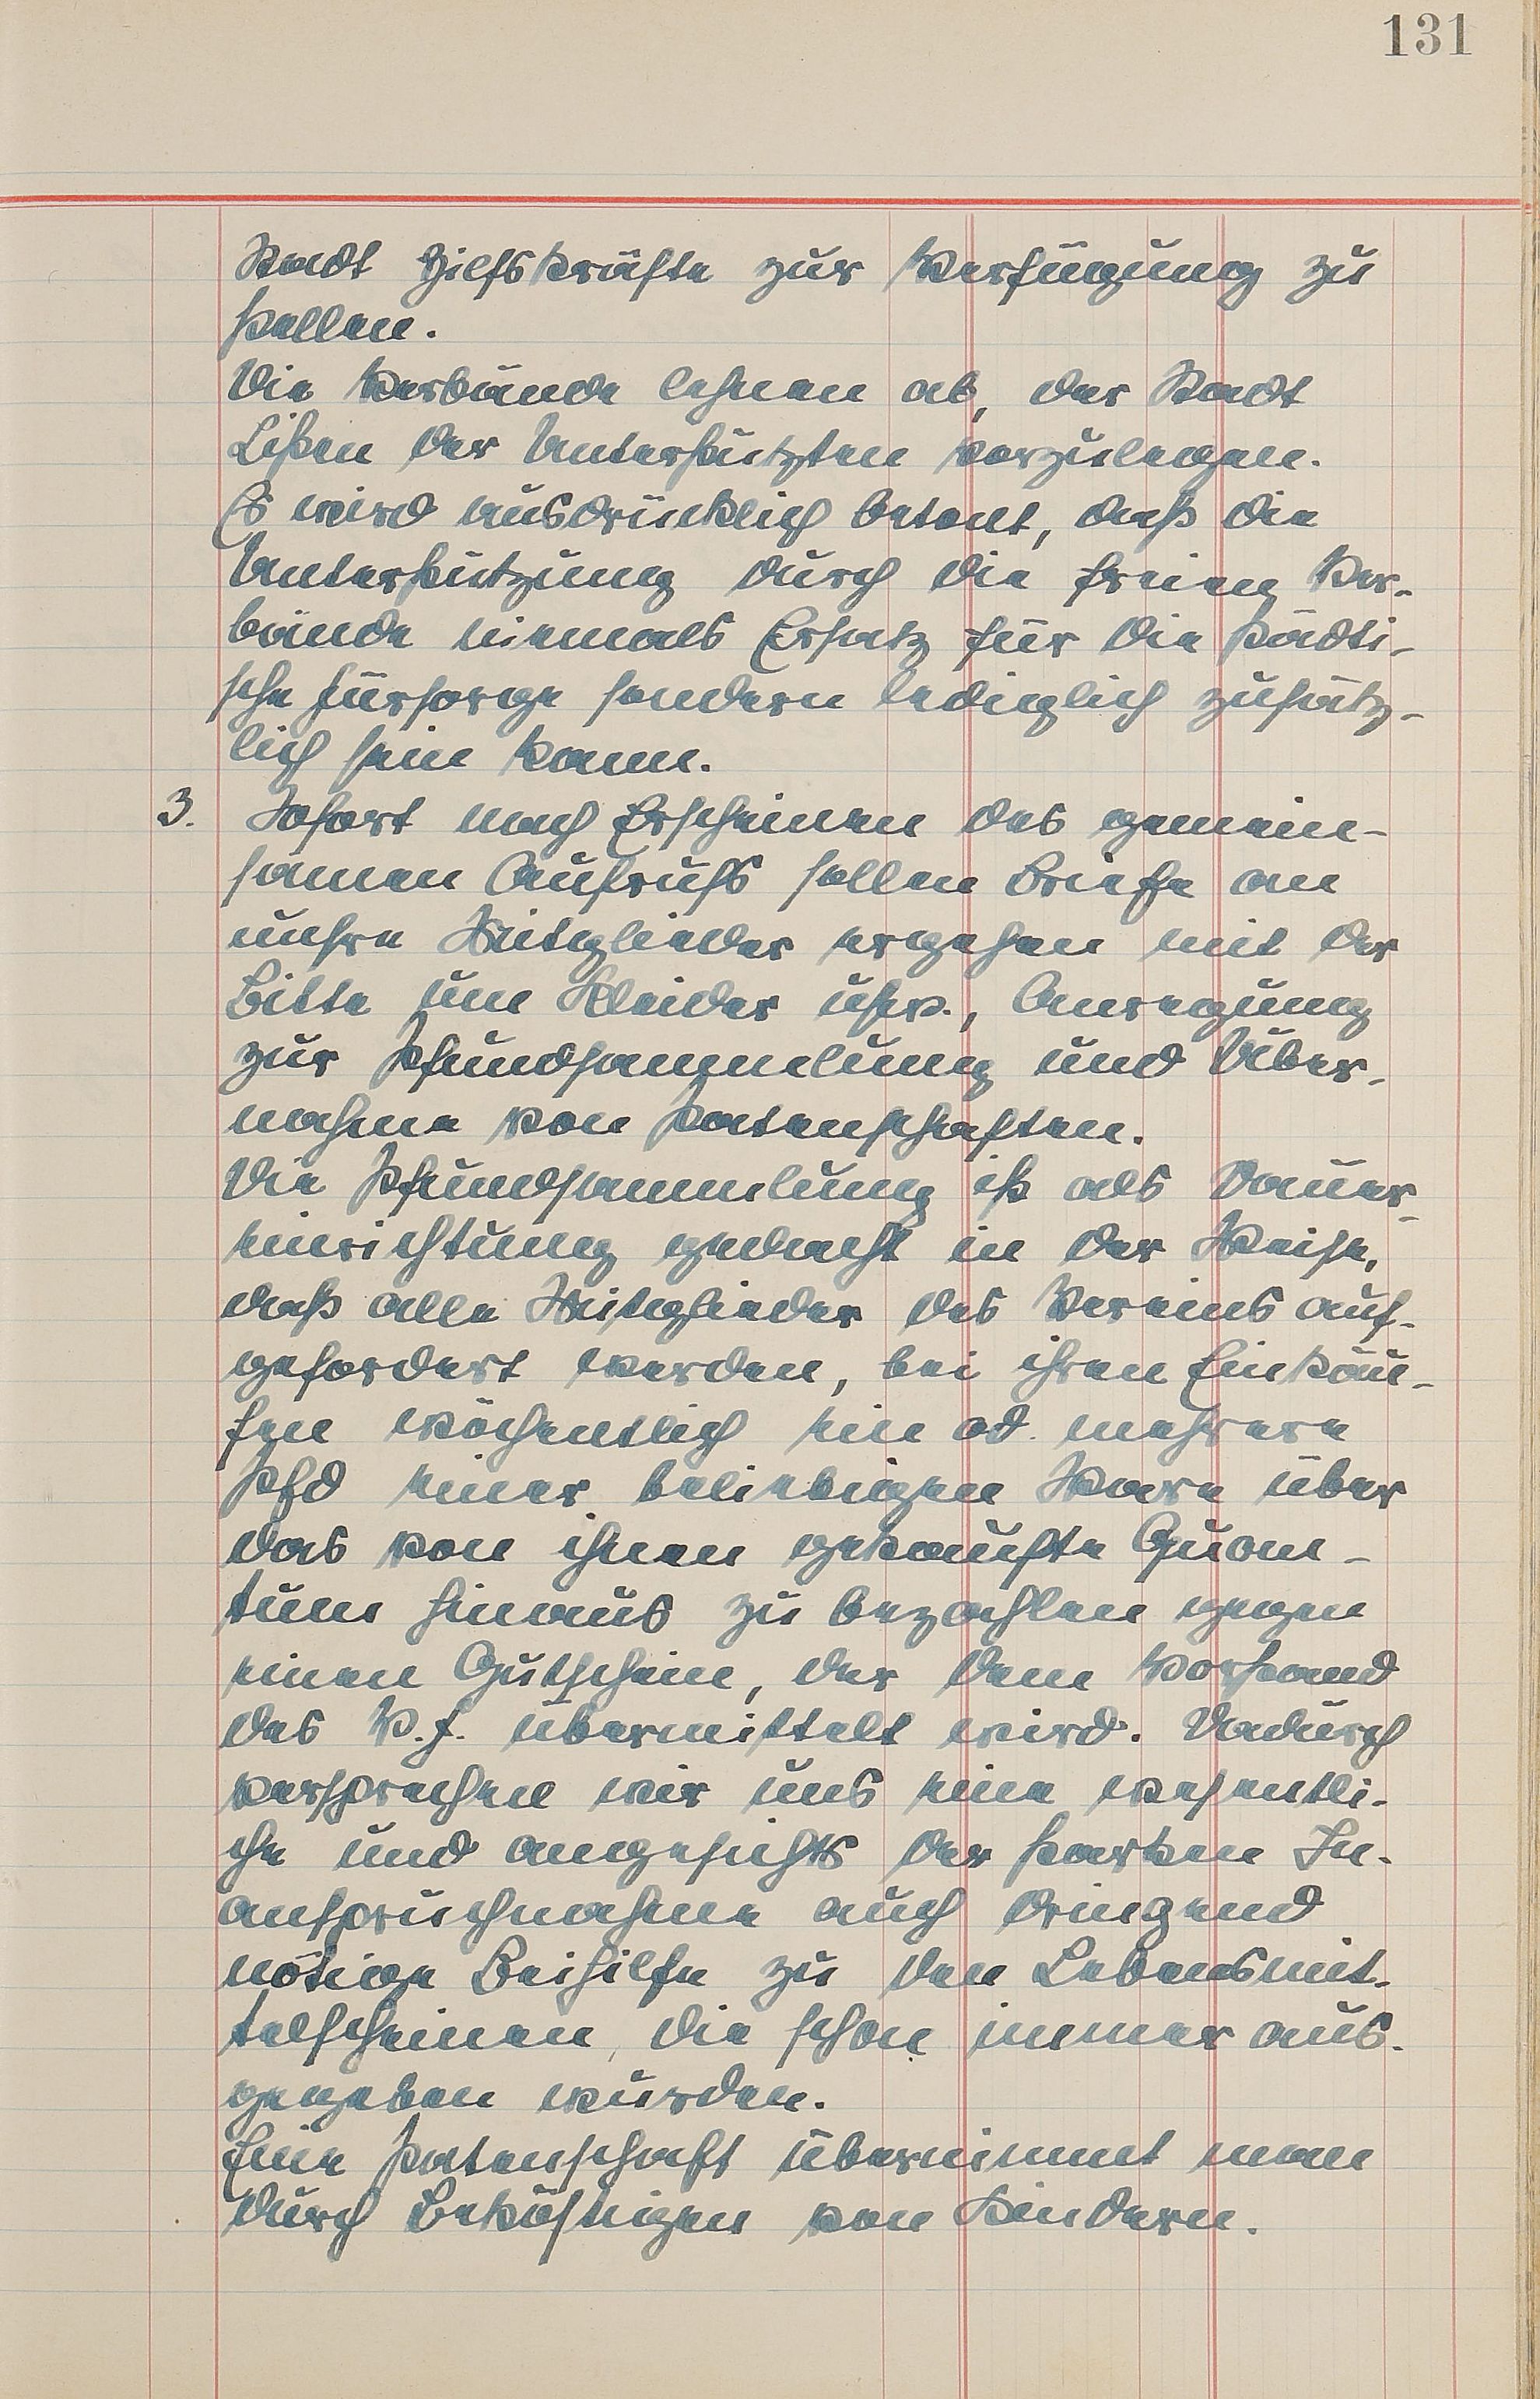 131
Stadt Hilfskräfte zur Verfügung zu
stellen.
Die Verbände lehnen ab, der Stadt
Listen der Unterstützten vorzulegen.
Es wird ausdrücklich betont, daß die
Unterstützung durch die freien Ver-
bände niemals Ersatz für die städti-
sche Fürsorge sondern lediglich zusätz-
lich sein kann.
3. Sofort nach Erscheinen des gemein-
samen Aufrufs sollen Briefe an
unsre Mitglieder ergehen mit der
Bitte um Kleider usw., Anregung
zur Pfundsammlung und Über-
nahme von Patenschaften.
Die Pfundsammlung ist als Dauer-
einrichtung gedacht in der Weise,
daß alle Mitglieder des Vereins auf-
gefordert werden, bei ihren Einkäu-
fen wöchentlich ein od. mehrere
Pfd einer beliebigen Ware über
das von ihnen gekaufte Quan-
tum hinaus zu bezahlen gegen
einen Gutschein, der dem Vorstand
des V.f. übermittelt wird. Dadurch
versprechen wir uns eine wesentli-
che und angesichts der starken In-
anspruchnahme auch dringend
nötige Beihilfe zu den Lebensmit-
telscheinen, die schon immer aus-
gegeben wurden.
Eine Patenschaft übernimmt man
durch Beköstigen von Kindern.